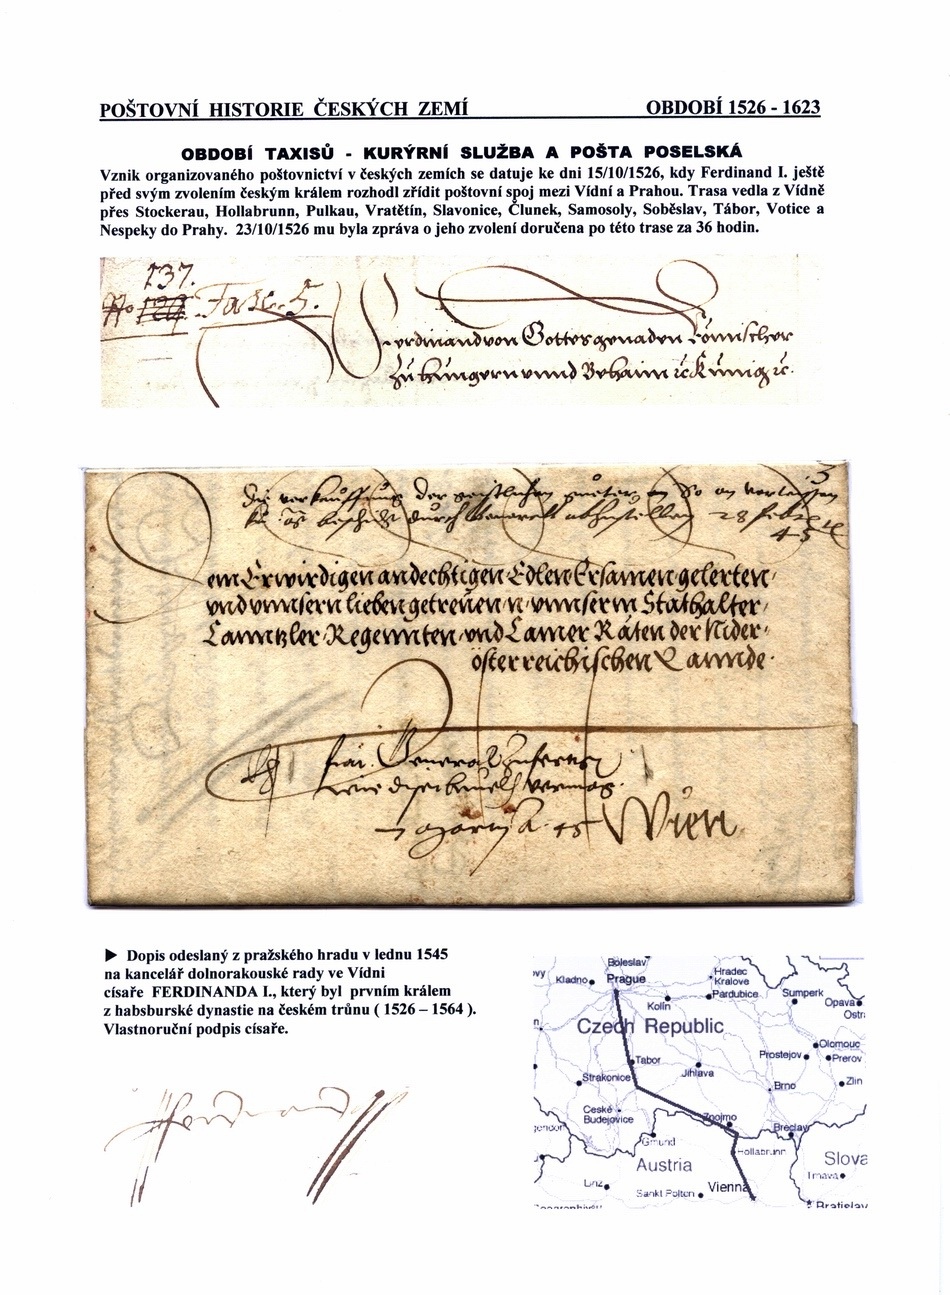 POŠTOVNÍ HISTORIE ČESKÝCH ZEMÍ OBDOBÍ 1526 - 1623
OBDOBÍ TAXISŮ - KURÝRNÍ SLUŽBA A POŠTA POSELSKÁ
Vznik organizovaného poštovnictví v českých zemích se datuje ke dni 15/10/1526, kdy Ferdinand I. ještě
před svým zvolením českým králem rozhodl zřídit poštovní spoj mezi Vídní a Prahou. Trasa vedla z Vídně
přes Stockerau, Hollabrunn, Pulkau, Vratětín, Slavonice, Člunek, Samosoly, Soběslav, Tábor, Votice a
Nespeky do Prahy. 23/10/1526 mu byla zpráva o jeho zvolení doručena po této trase za 36 hodin.
137.
No Fasc. 5.
Ferdinand von Gottes genaden Römischer
Zu Hungern unnd Behaim ꝛc Künig ꝛc.
Die verkauffung der geistlichen gueter
durch 28 Febr
45
den Erwirdigen andechtigen Edlen Ersamen gelerten
und unnsern lieben getreuen n unnserm Stathalter
Canntzler Regennten und Camer Räten der Nider
österreichischen Lannde
General
Wien
► Dopis odeslaný z pražského hradu v lednu 1545
na kancelář dolnorakouské rady ve Vídni
císaře FERDINANDA I., který byl prvním králem
z habsburské dynastie na českém trůnu ( 1526 – 1564 ).
Vlastnoruční podpis císaře.
Ferdinand
Boleslav
Kladno
Prague
Hradec
Kralove
Kolín
Pardubice
Sumperk
Opava
Ostr
Czech Republic
Olomouc
Prostejov
Prerov
Tabor
Jihlava
Strakonice
Brno
Zlin
České
Budejovice
Znojmo
Breclav
Gmund
Hollabrunn
Austria
Slova
Trnava
Linz
Sankt Polten
Vienna
Bratislav